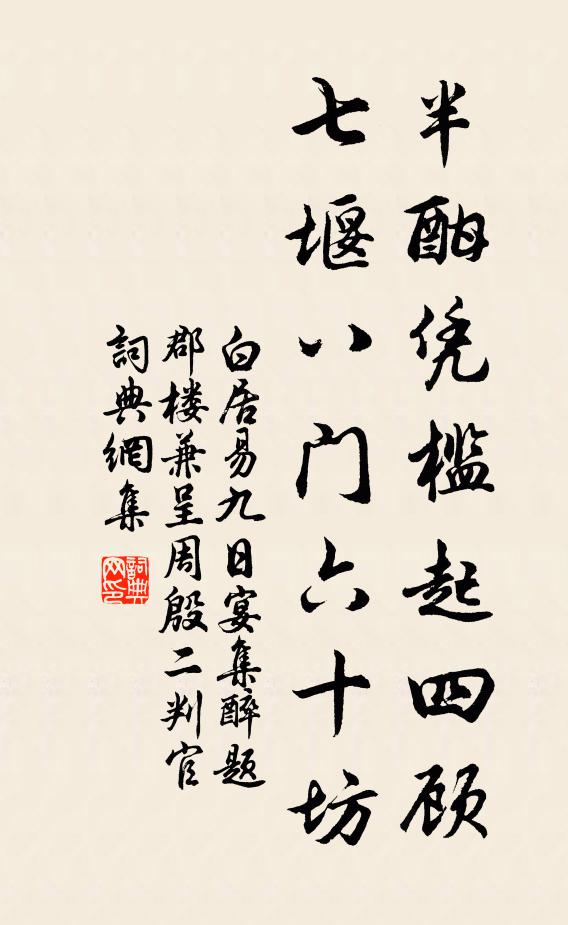 半酣凭槛起四顾
七堰八门六十坊
白居易九日宴集醉题
郡楼兼呈周殷二判官
詞典網集
詞典
网印